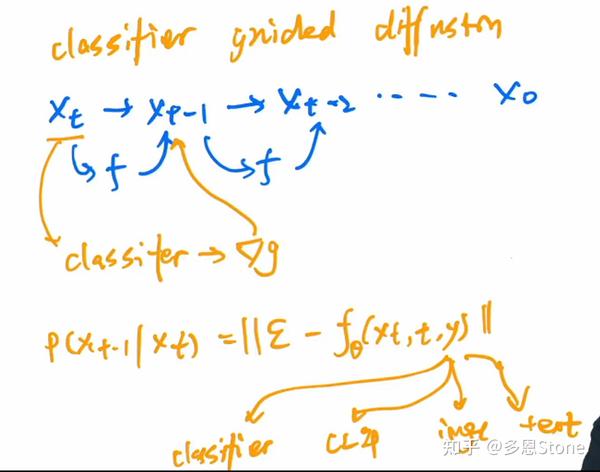 classifier guided diffusion
x_t → x_t-1 → x_t-2 ---- x_0
f f
classifer → ∇g
p(x_t-1 | x_t) = ||ε - f_θ(x_t, t, y)||
classifier CLIP img text
知乎 @多恩Stone